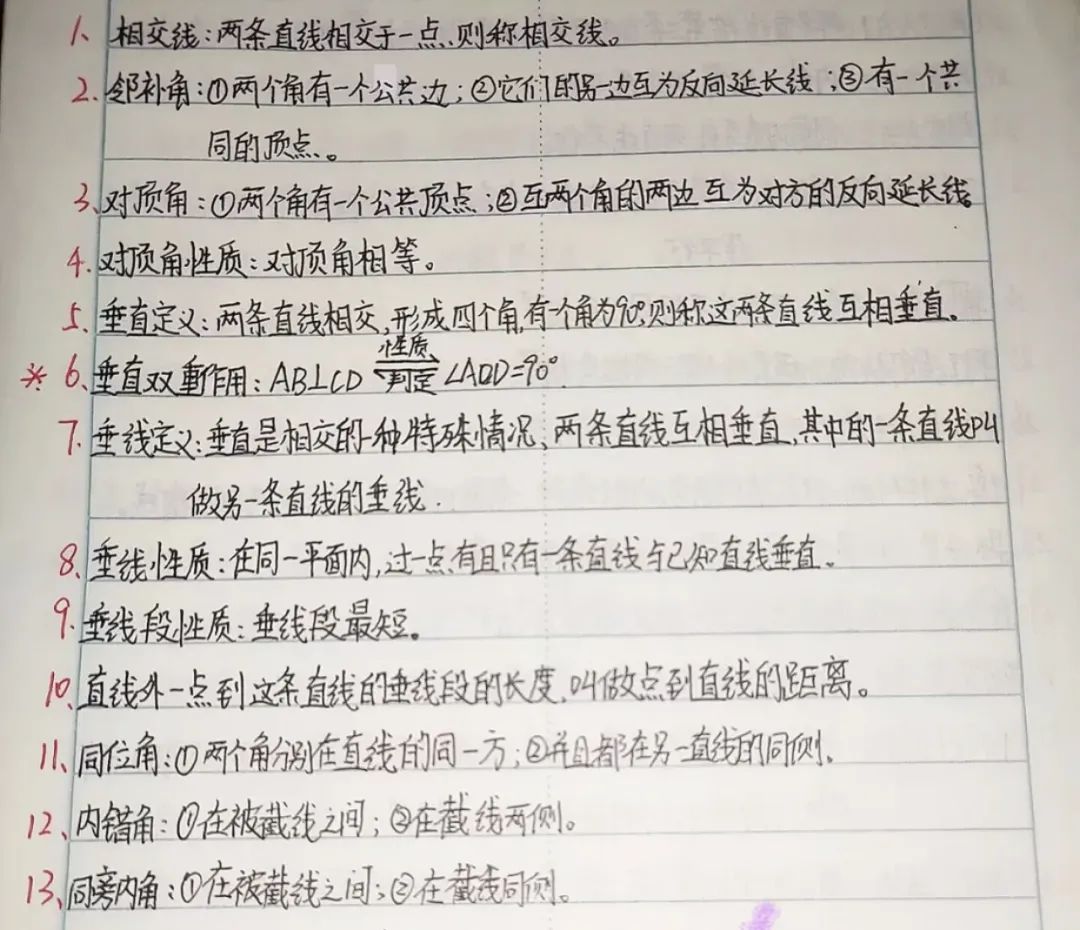 1、相交线：两条直线相交于一点，则称相交线。
2、邻补角：①两个角有一个公共边；②它们的另一边互为反向延长线；③有一个共
同的顶点。
3、对顶角：①两个角有一个公共顶点；②互两个角的两边互为对方的反向延长线。
4、对顶角性质：对顶角相等。
5、垂直定义：两条直线相交，形成四个角，有一个角为90°，则称这两条直线互相垂直。
性质
※ 6、垂直双重作用：AB⊥CD 判定 ∠AOD=90°.
7、垂线定义：垂直是相交的一种特殊情况、两条直线互相垂直，其中的一条直线叫
做另一条直线的垂线.
8、垂线性质：在同一平面内，过一点有且只有一条直线与已知直线垂直。
9、垂线段性质：垂线段最短。
10、直线外一点到这条直线的垂线段的长度，叫做点到直线的距离。
11、同位角：①两个角分别在直线的同一方；②并且都在另一直线的同侧.
12、内错角：①在被截线之间；②在截线两侧。
13、同旁内角：①在被截线之间；②在截线同侧。